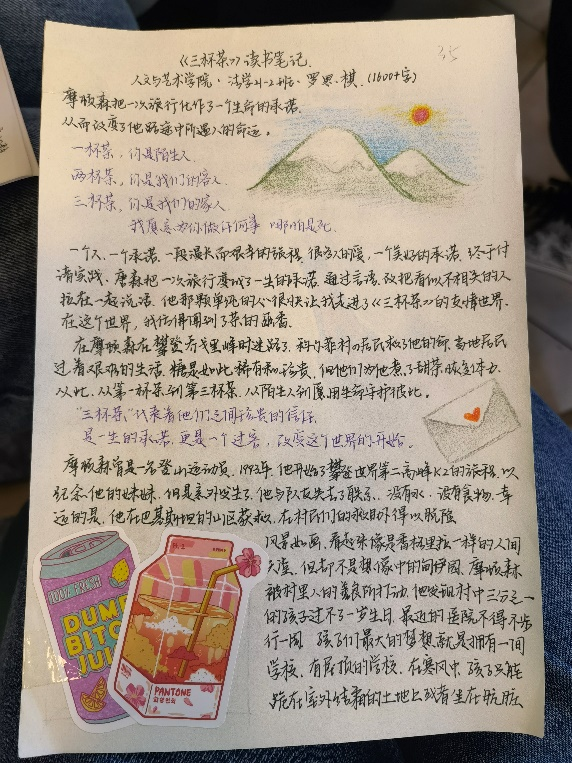 35
《三杯茶》读书笔记.
人文与艺术学院·法学21-2班·罗思棋.(1600+字)
摩顿森把一次旅行化作了一个生命的承诺.
从而改变了他路途中所遇人的命运。
一杯茶,你是陌生人.
两杯茶,你是我们的客人.
三杯茶,你是我们的家人
我愿意为你做任何事 哪怕是死.
一个人、一个承诺、一段漫长而艰辛的旅程,很多人的爱,一个美好的承诺,终于付
诸实践.摩森把一次旅行变成了一生的承诺,通过言语,改把看似不相关的人
拉在一起说话.他那颗单纯的心很快让我走进了《三杯茶》的友情世界.
在这个世界,我仿佛闻到了茶的幽香.
在摩顿森在攀登乔戈里峰时迷路了.科尔菲村的居民救了他的命.当地居民
过着艰难的生活.糖是如此稀有和珍贵.但他们为他煮了甜茶.恢复体力.
从此.从第一杯茶到第三杯茶.从陌生人到愿用生命守护彼此。
"三杯茶"代表着他们之间珍贵的信任.
是一生的承诺.更是一个过客,改变这个世界的开始。
摩顿森曾是一名登山运动员.1993年.他开始了攀登世界第二高峰K2的旅程.以
纪念他的妹妹.但是意外发生了.他与队友失去了联系.没有水、没有食物.幸
运的是.他在巴基斯坦的山区获救.在村民们的救助外得以脱险
风景如画.看起来像是香格里拉一样的人间
天堂.但却不是想像中的伊甸园.摩顿森
被村里人的善良所打动.他发现村中三分之一
的孩子过不了一岁生日.最近的医院不得不步
行一周.孩子们最大的梦想就是拥有一间
学校.有屋顶的学校.在寒风中.孩子只能
跪在室外结霜的土地上或者坐在肮脏
100% FRESH
DUMB
BITCH
JUICE
PANTONE